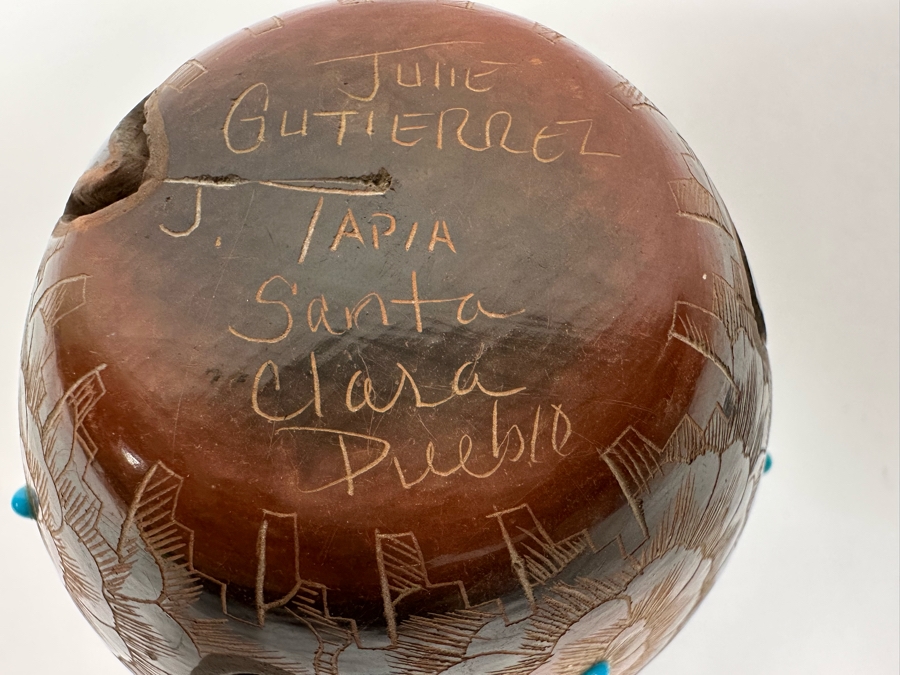 Julie
GUTIERREZ
J. TAPIA
Santa
Clara
Pueblo